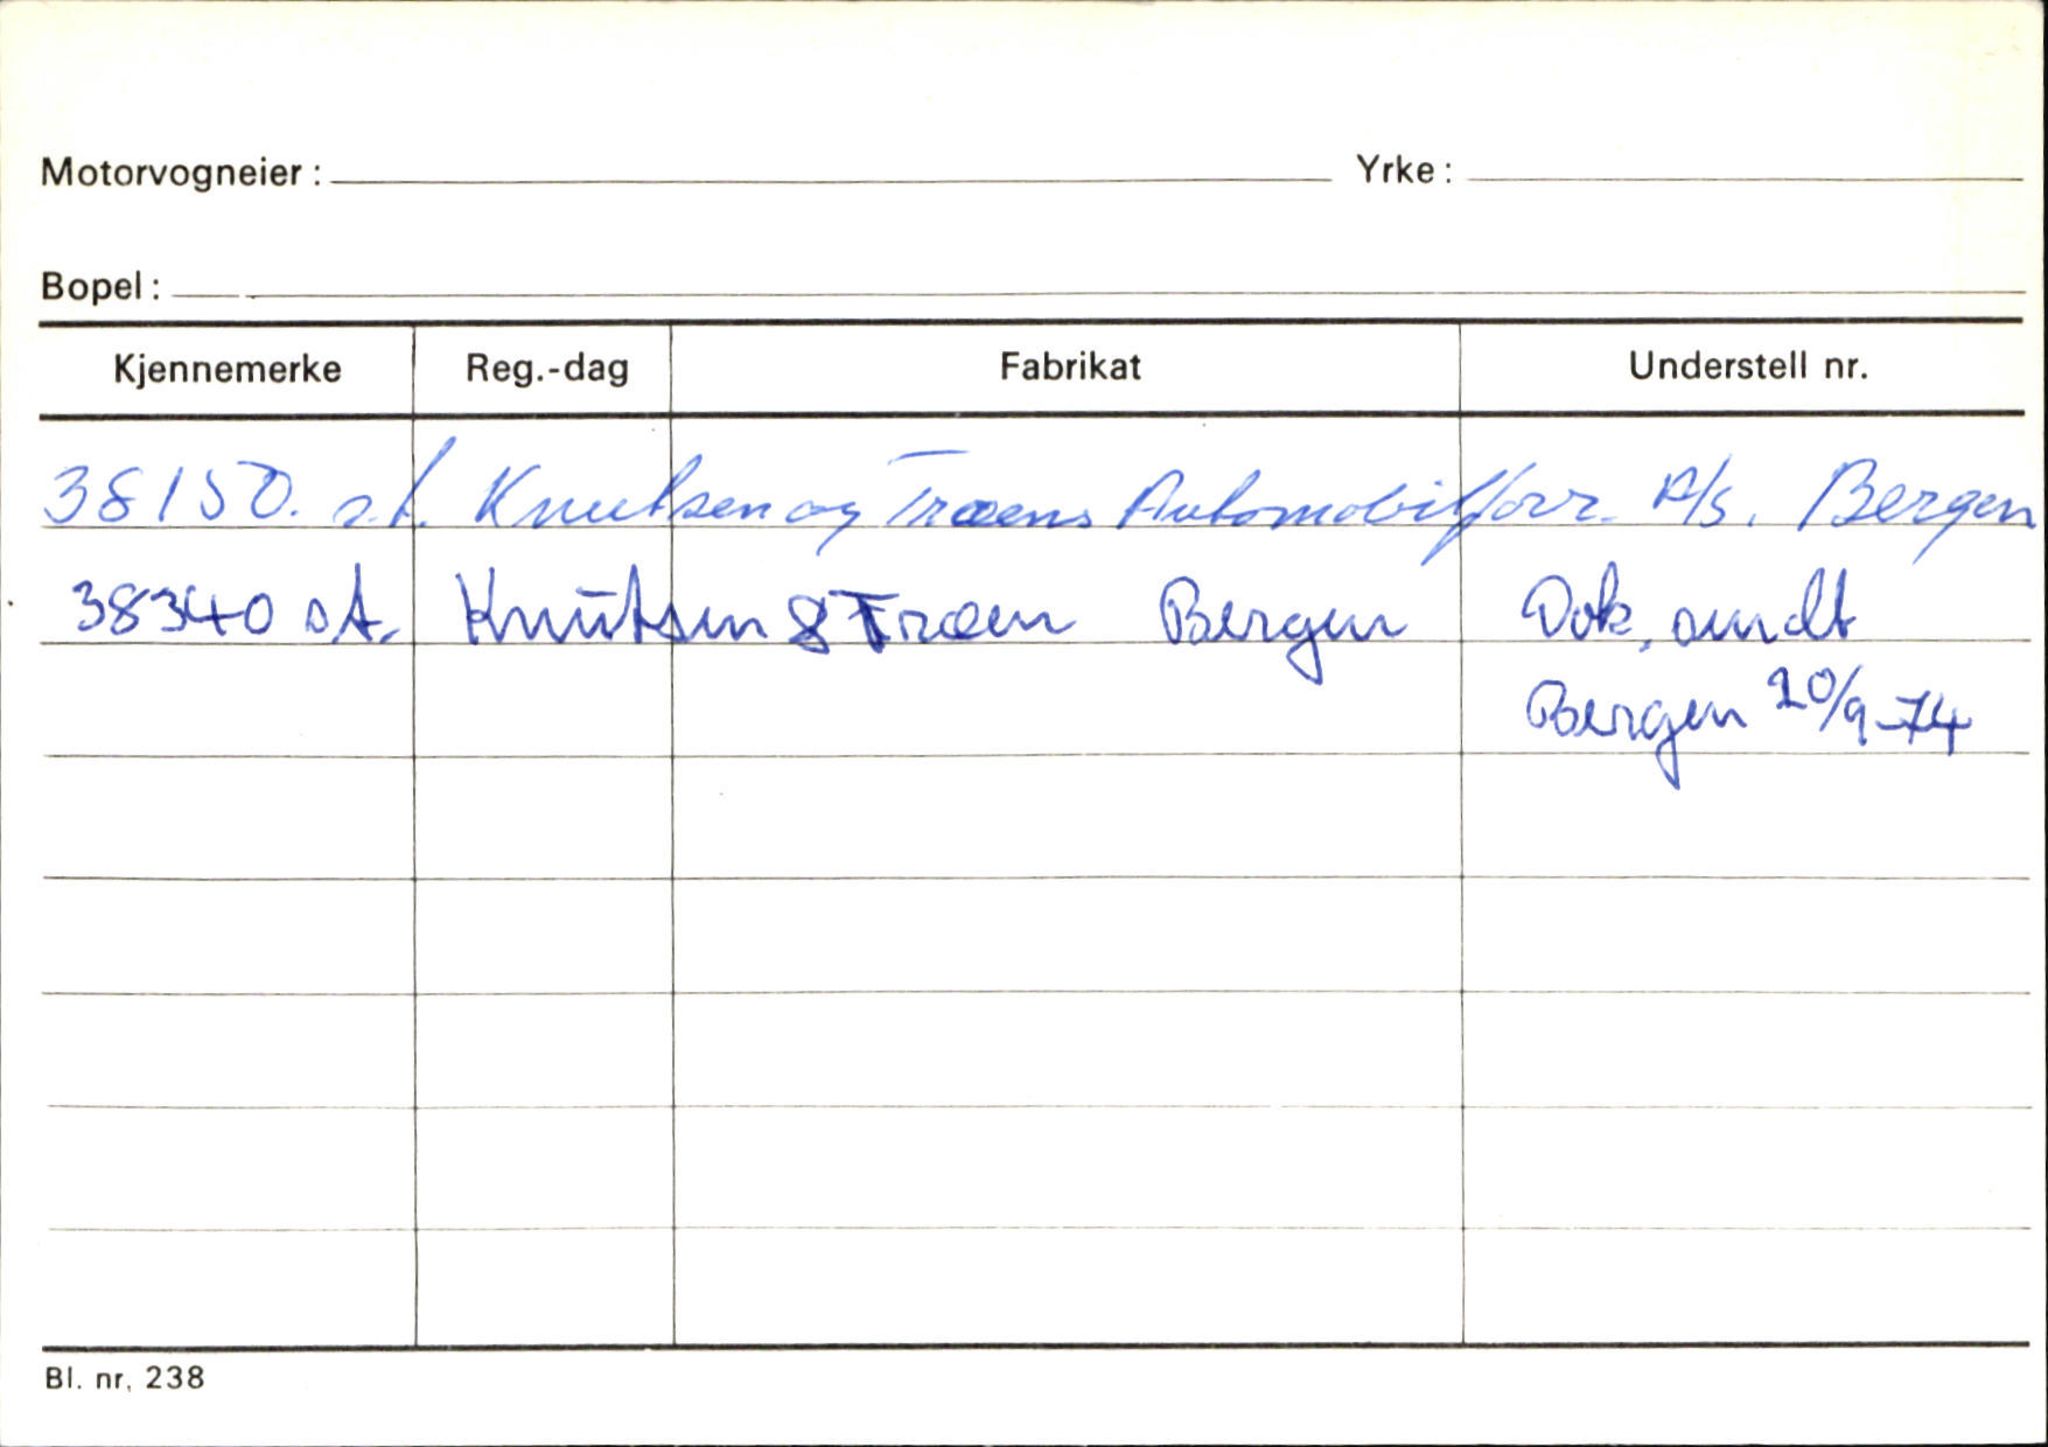 Motorvogneier: Yrke:
Bopel:
Kjennemerke Reg.-dag Fabrikat Understell nr.
38150. s.t. Knutsen og Træens Automobilforr. A/S. Bergen
38340 st. Knutsen & Træen Bergen Dok. sendt
Bergen 20/9-74
Bl. nr. 238